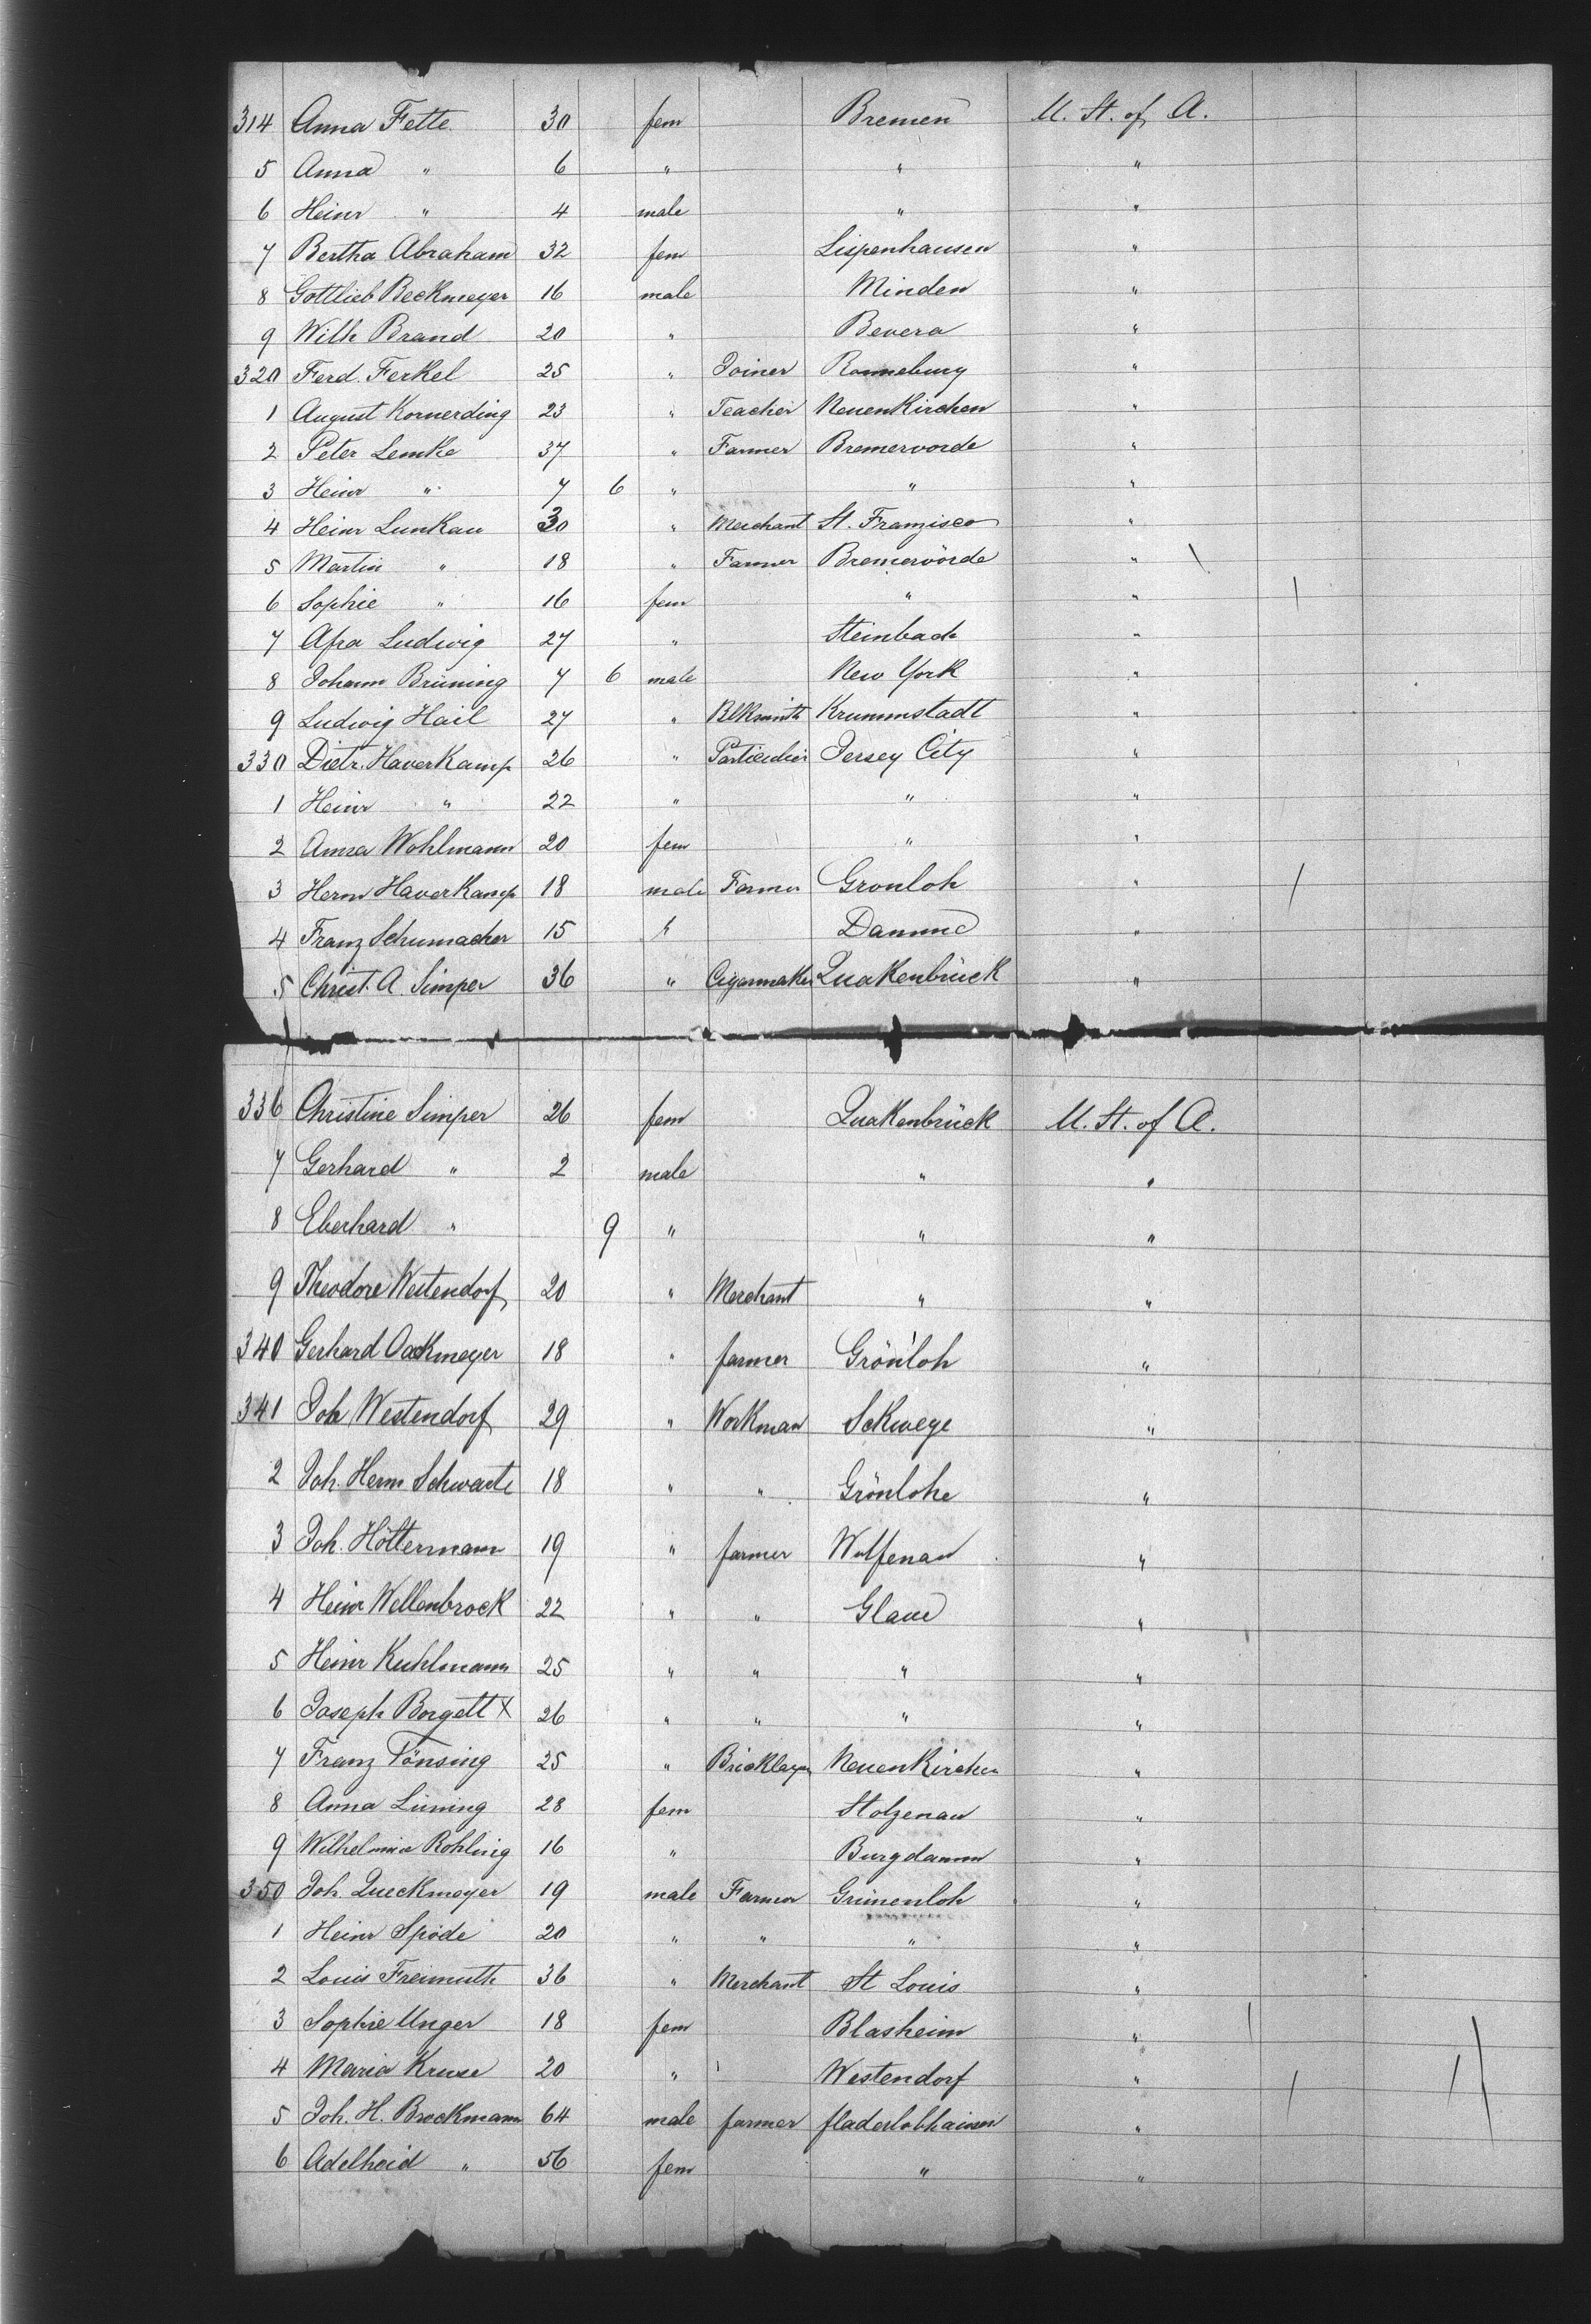 314 Anna Fette 30 fem Bremen U. St. of A.
5 Anna " 6 " " "
6 Heinr " 4 male " "
7 Bertha Abraham 32 fem Lispenhausen "
8 Gottlieb Beckmeyer 16 male Minden "
9 Wilh Brand 20 " Bevera "
320 Ferd. Ferkel 25 " Joiner Ronneburg "
1 August Kornerding 23 " Teacher Neuenkirchen "
2 Peter Lemke 37 " Farmer Bremervorde "
3 Heinr " 7 6 " " "
4 Heinr Lunkau 30 " Merchant St. Franzisco "
5 Martin " 18 " Farmer Bremervörde "
6 Sophie " 16 fem " "
7 Afra Ludwig 27 " Steinbach "
8 Johann Brüning 7 6 male New York "
9 Ludwig Hail 27 " Blksmith Krummstadt "
330 Dietr. Haverkamp 26 " Particulier Jersey City "
1 Heinr " 22 " " "
2 Anna Wohlmann 20 fem " "
3 Herm Haverkamp 18 male Farmer Gronloh "
4 Franz Schumacher 15 " Damme "
5 Christ. A. Simper 36 " Cigarmaker Quakenbrück "
336 Christine Simper 26 fem Quakenbrück U. St. of A.
7 Gerhard " 2 male " "
8 Eberhard " 9 " " "
9 Theodore Westendorf 20 " Merchant " "
340 Gerhard Oackmeyer 18 " farmer Grönloh "
341 Joh Westendorf 29 " Workman Schwege "
2 Joh. Herm Schwarte 18 " " Grönlohe "
3 Joh. Höltermann 19 " farmer Wulfenau "
4 Heinr Wellenbrock 22 " " Glaue "
5 Heinr Kuhlmann 25 " " " "
6 Joseph Borgelt X 26 " " " "
7 Franz Tönsing 25 " Bricklayer Neuenkirchen "
8 Anna Lüning 28 fem Stolzenau "
9 Wilhelmine Rohling 16 " Burgdamm "
350 Joh. Queckmeyer 19 male Farmer Grünenloh "
1 Heinr Spöde 20 " " " "
2 Louis Freimuth 36 " Merchant St Louis "
3 Sophie Unger 18 fem Blasheim "
4 Maria Kruse 20 " Westendorf "
5 Joh. H. Brockmann 64 male farmer "
6 Adelheid " 56 fem " "